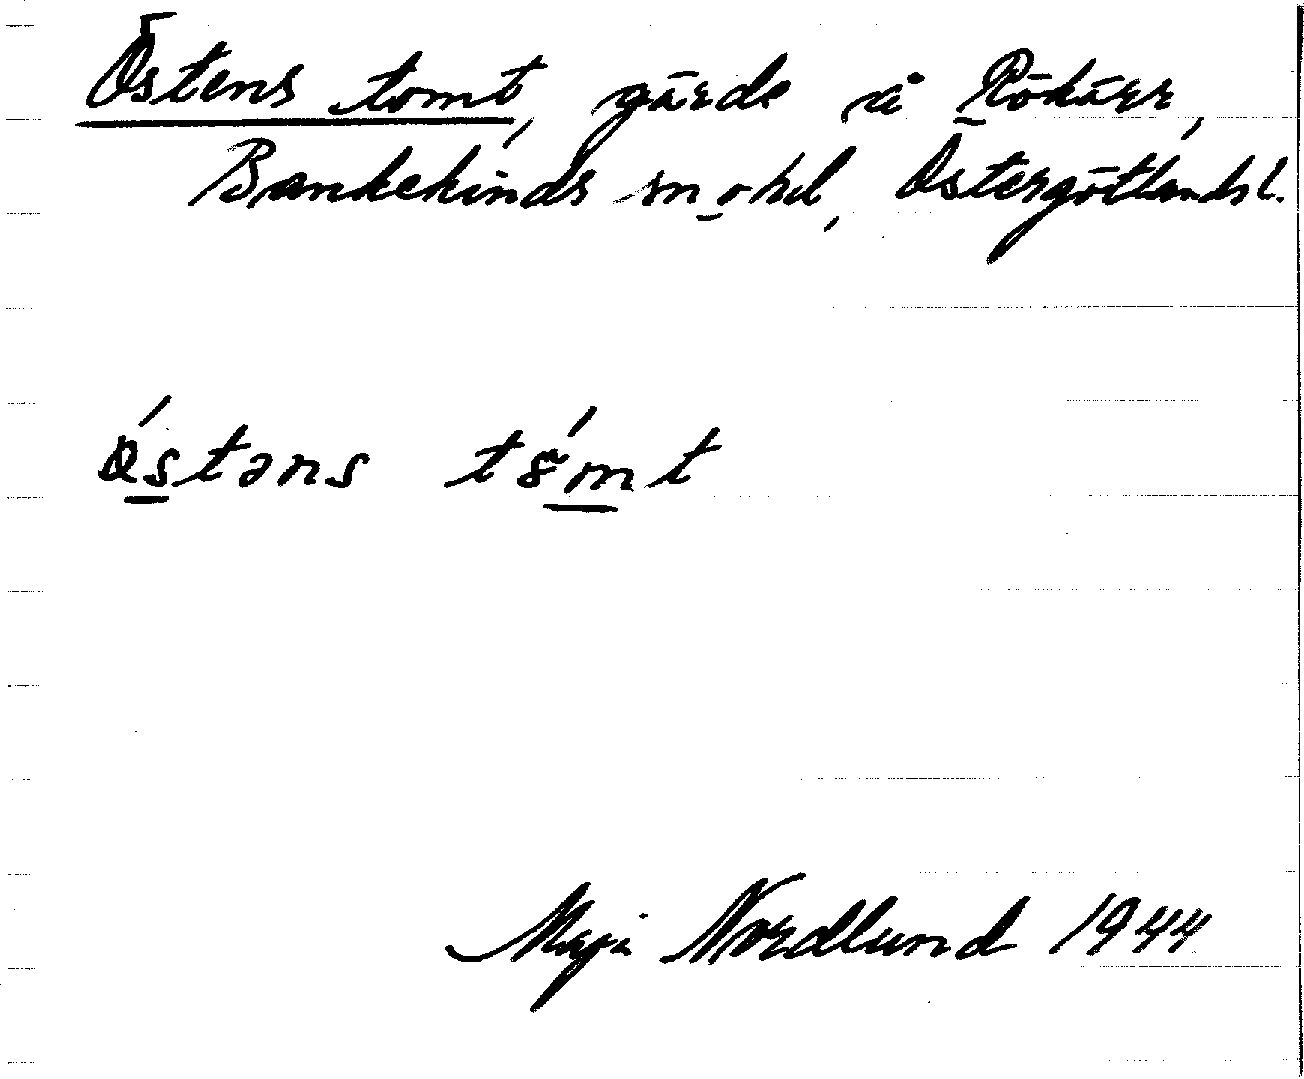 Östens tomt, gärde å Rökärr,
Bankekinds sn o hd, Östergötlands l.
östəns tomt
Maja Nordlund 1944